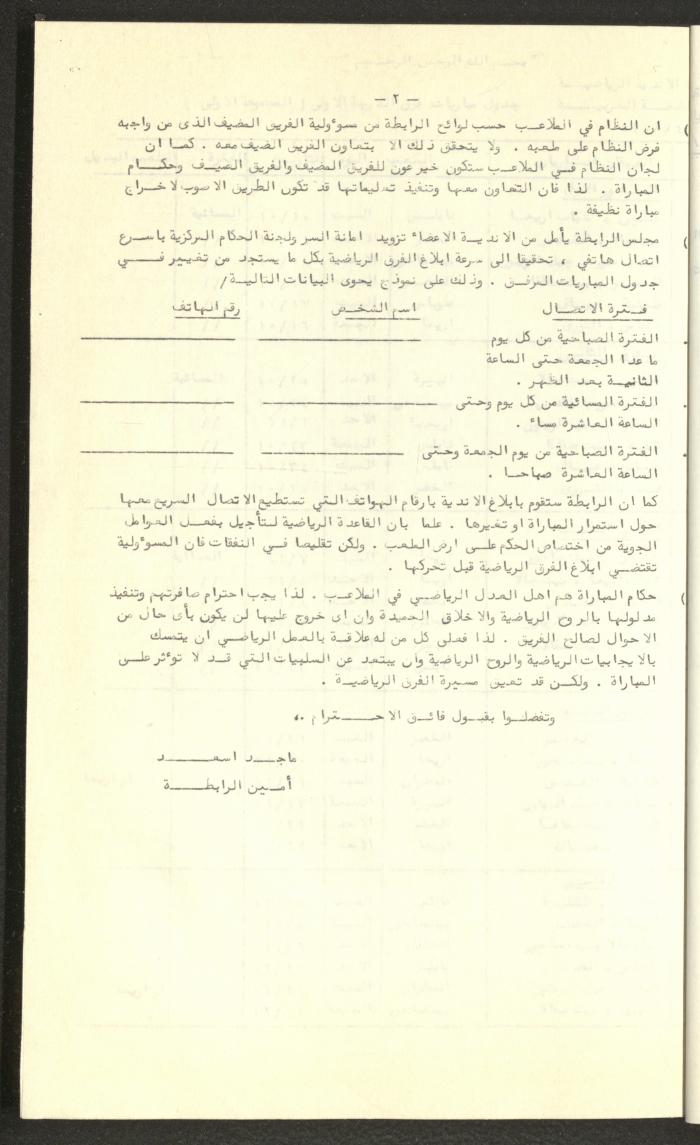 - ٢ -
) ان النظام في الملاعب حسب لوائح الرابطة من مسؤولية الفريق المضيف الذى من واجبه
فرض النظام على ملعبه . ولا يتحقق ذلك الا بتعاون الفريق الضيف معه . كما ان
لجان النظام في الملاعب ستكون خير عون للفريق المضيف والفريق الضيف وحكام
المباراة . لذا فان التعاون معها وتنفيذ تعليماتها قد تكون الطريق الاصوب لاخراج
مباراة نظيفة .
) مجلس الرابطة يأمل من الاندية الاعضاء تزويد امانة السر ولجنة الحكام المركزية باسرع
اتصال هاتفي ، تحقيقا الى سرعة ابلاغ الفرق الرياضية بكل ما يستجد من تغيير في
جدول المباريات المرفق . وذلك على نموذج يحوى البيانات التالية /
فترة الاتصال اسم الشخص رقم الهاتف
. الفترة الصباحية من كل يوم
ما عدا الجمعة حتى الساعة
الثانية بعد الظهر .
. الفترة المسائية من كل يوم وحتى
الساعة العاشرة مساء .
. الفترة الصباحية من يوم الجمعة وحتى
الساعة العاشرة صباحا .
كما ان الرابطة ستقوم بابلاغ الاندية بارقام الهواتف التي تستطيع الاتصال السريع معها
حول استمرار المباراة او تغيرها . علما بان القاعدة الرياضية لتأجيل بفعل العوامل
الجوية من اختصاص الحكم على ارض الملعب . ولكن تقليصا في النفقات فان المسؤولية
تقتضي ابلاغ الفرق الرياضية قبل تحركها .
) حكام المباراة هم اهل العدل الرياضي في الملاعب . لذا يجب احترام صافرتهم وتنفيذ
مدلولها بالروح الرياضية والاخلاق الحميدة وان اى خروج عليها لن يكون بأى حال من
الاحوال لصالح الفريق . لذا فعلى كل من له علاقة بالعمل الرياضي ان يتمسك
بالايجابيات الرياضية والروح الرياضية وان يبتعد عن السلبيات التي قد لا تؤثر على
المباراة . ولكن قد تعيق مسيرة الفرق الرياضية .
وتفضلوا بقبول فائق الاحترام ،،
ماجد اسعد
أمين الرابطة